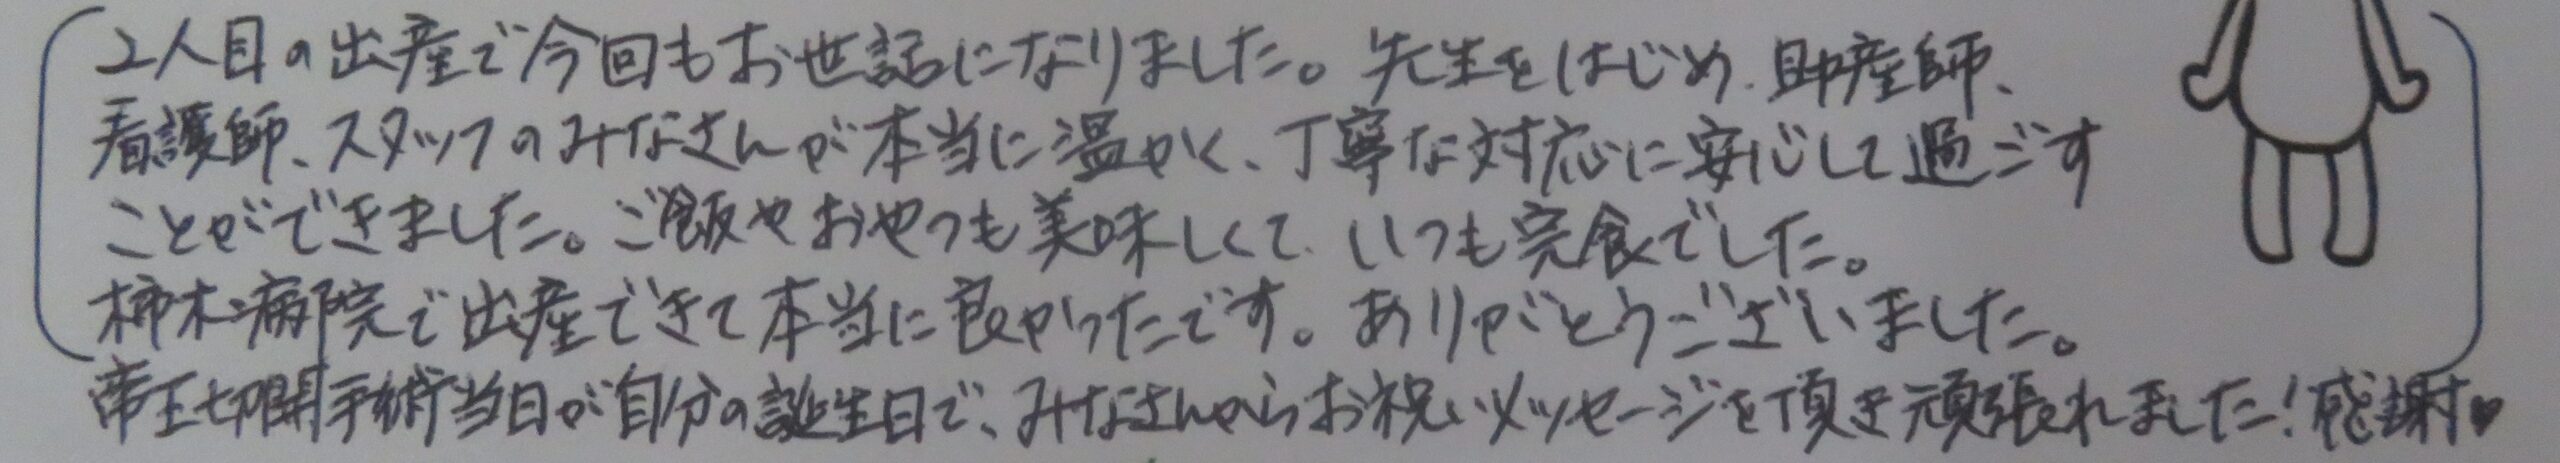 2人目の出産で今回もお世話になりました。先生をはじめ、助産師、
看護師、スタッフのみなさんが本当に温かく、丁寧な対応に安心して過ごす
ことができました。ご飯やおやつも美味しくて、いつも完食でした。
柿木病院で出産できて本当に良かったです。ありがとうございました。
帝王切開手術当日が自分の誕生日で、みなさんからお祝いメッセージを頂き頑張れました！感謝♥